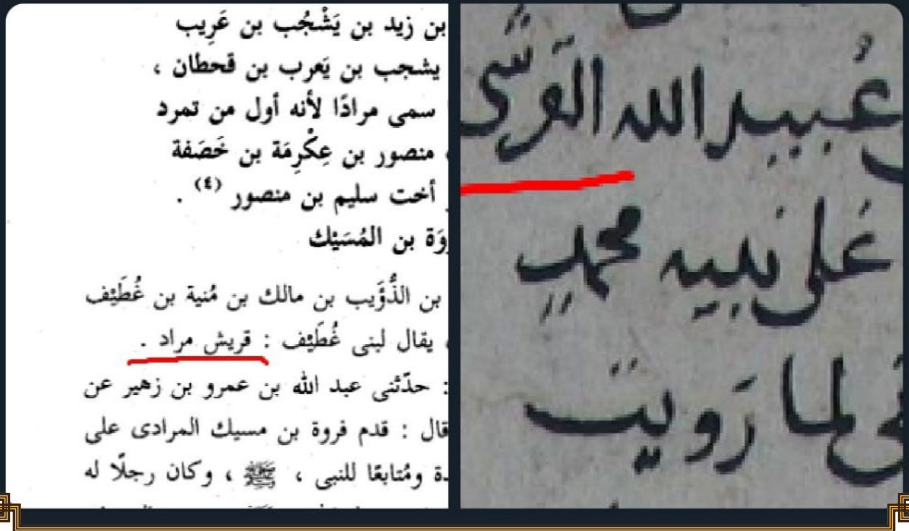 بن زيد بن يَشْجُب بن عَرِيب
يشجب بن يَعرب بن قحطان ،
سمى مرادًا لأنه أول من تمرد
منصور بن عِكْرِمَة بن خَصَفة
أخت سليم بن منصور (٤) .
وَة بن المُسَيْك
بن الذُّوَّيب بن مالك بن مُنية بن غُطَيْف
يقال لبنى غُطَيْف : قريش مراد .
: حدّثنى عبد الله بن عمرو بن زهير عن
قال : قدم فروة بن مسيك المرادى على
دة ومُتابعًا للنبى ، ﷺ ، وكان رجلًا له
عُبيد الله القرشى
عَلى نبيه محمد
لما رَويت